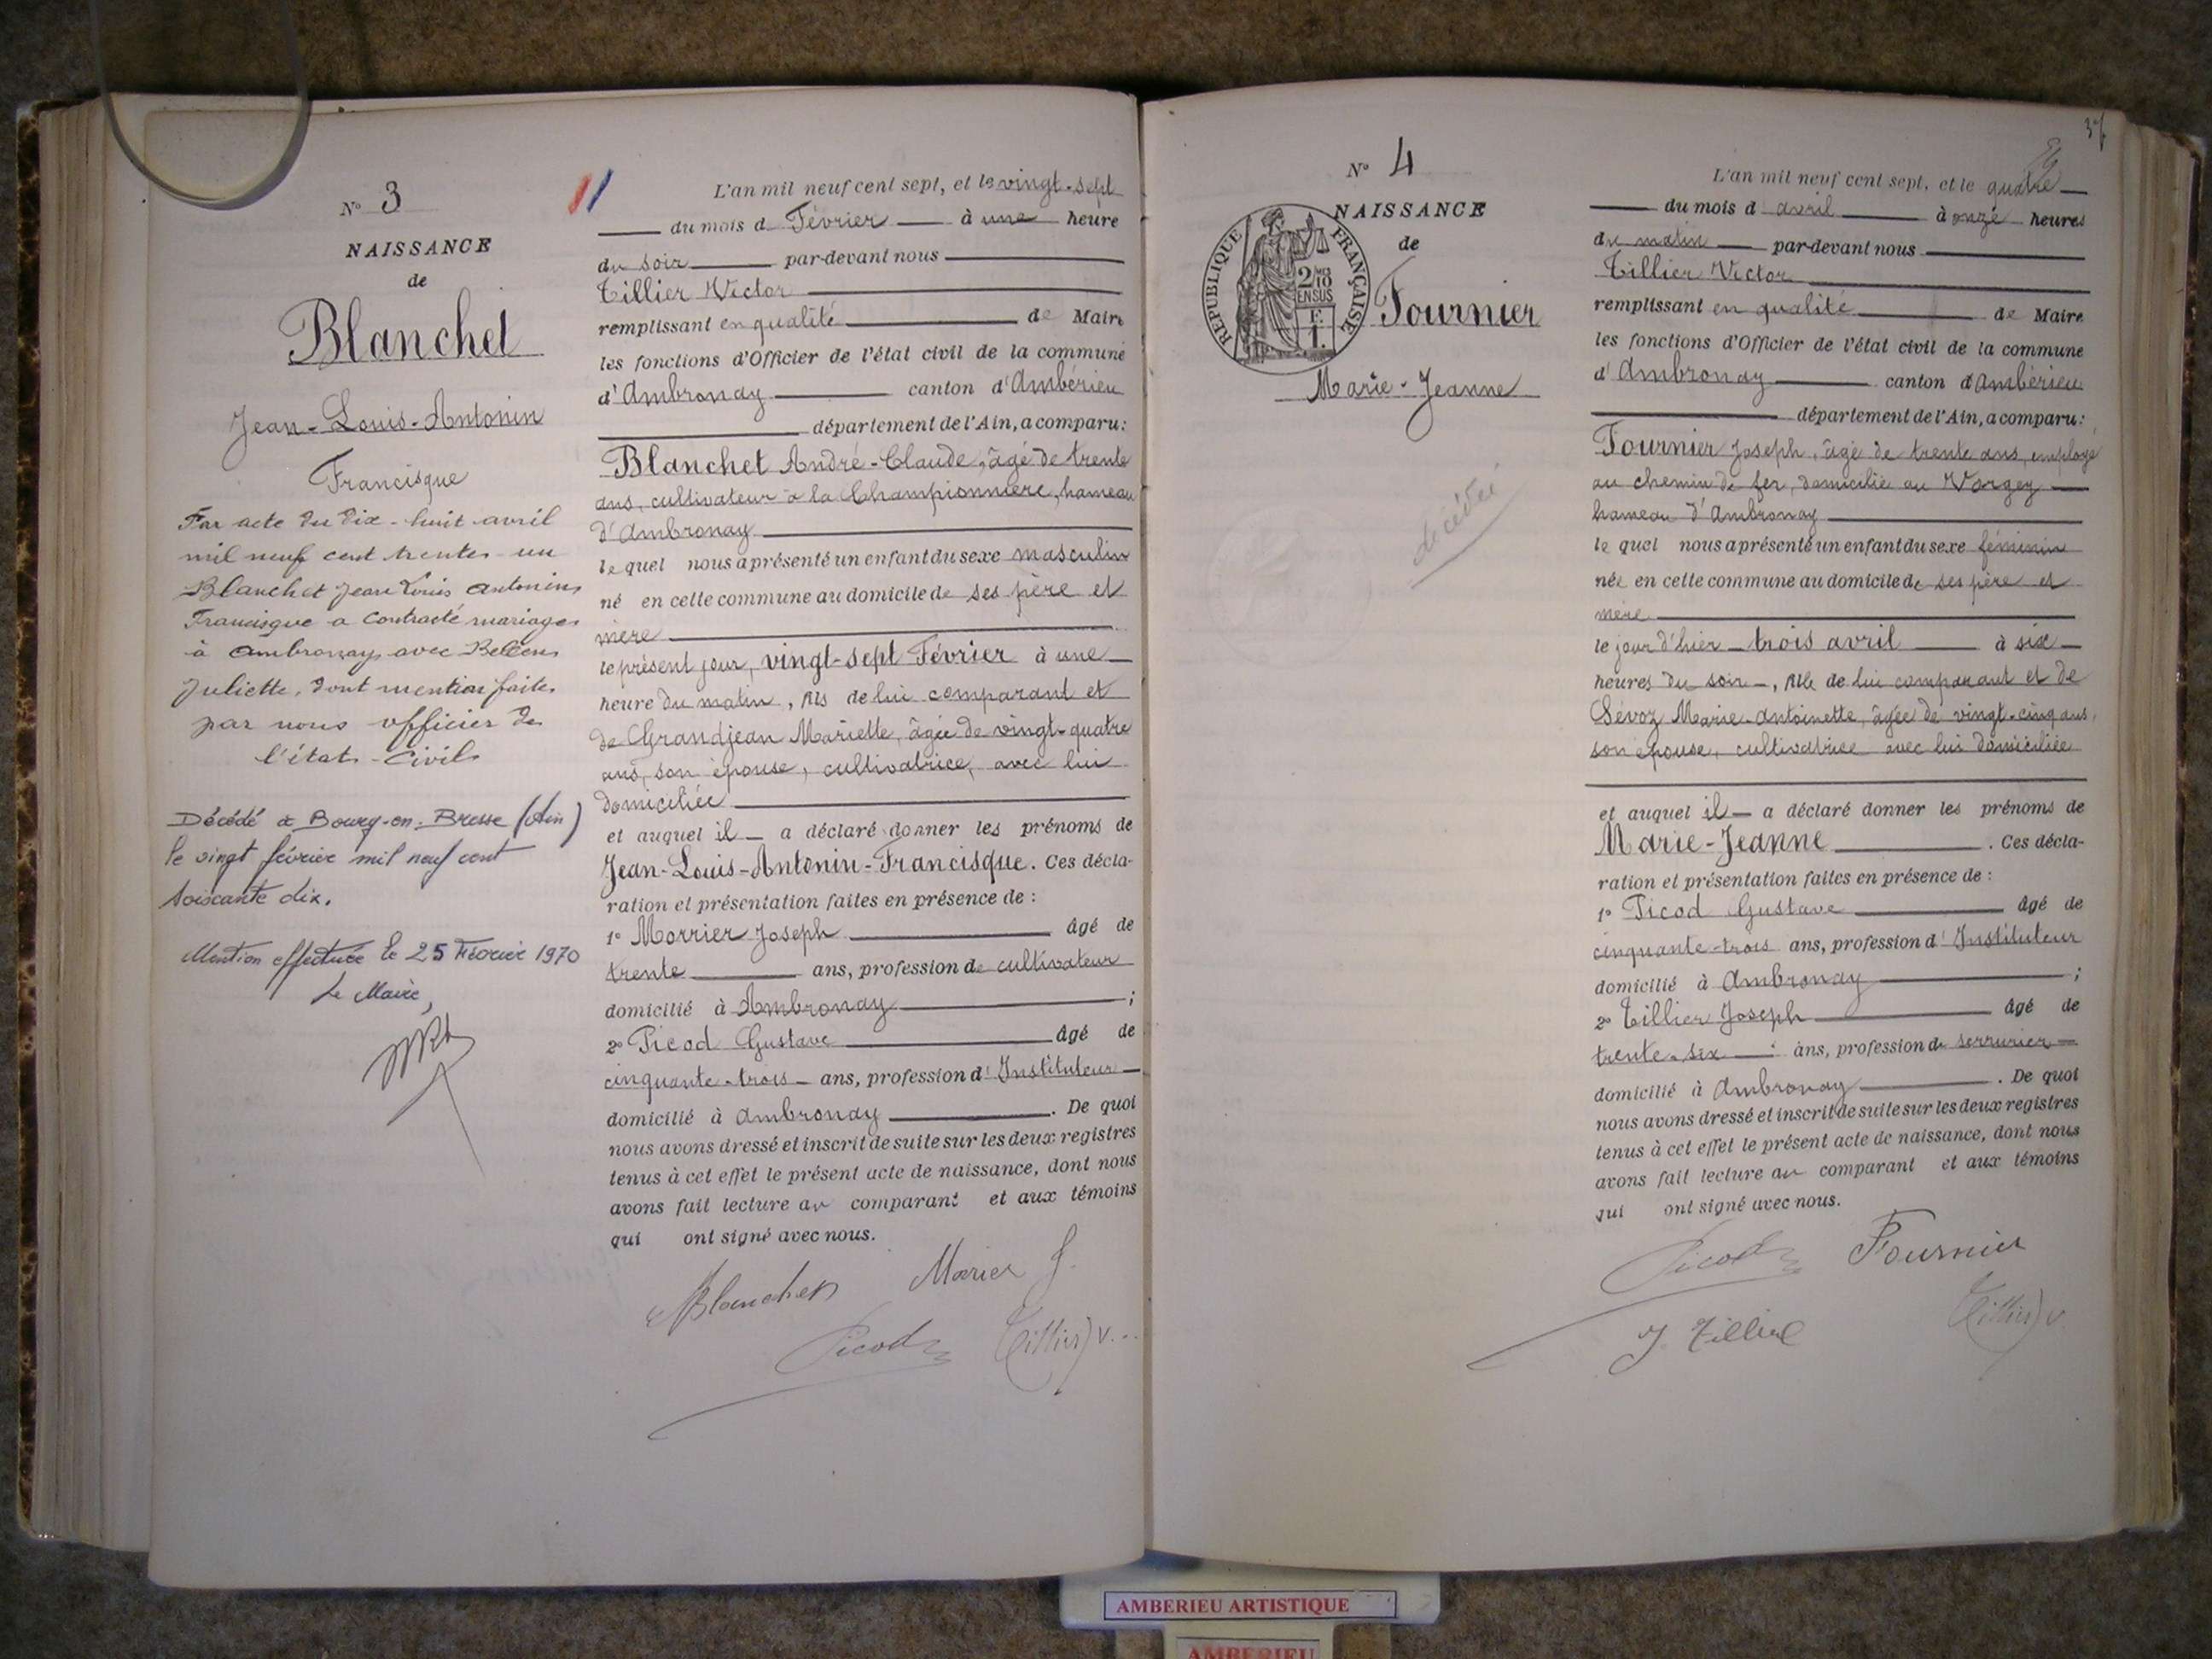 Nº 3
NAISSANCE
de
Blanchet
Jean-Louis-Antonin
Francisque
Par acte du dix-huit avril
mil neuf cent trente-un
Blanchet Jean Louis Antonin
Francisque a contracté mariage
à Ambronay avec
Juliette, dont mention faite
par nous officier de
l'état-civil
Décédé à Bourg-en-Bresse (Ain)
le vingt février mil neuf cent
soixante dix.
Mention effectuée le 25 Février 1970
Le Maire,
L'an mil neuf cent sept, et le vingt-sept
du mois de Février à une heure
du soir par-devant nous
Tillier Victor
remplissant en qualité de Maire
les fonctions d'Officier de l'état civil de la commune
d'Ambronay canton d'Ambérieu
département de l'Ain, a comparu:
Blanchet André-Claude, âgé de trente
ans, cultivateur à la Championnière, hameau
d'Ambronay
lequel nous a présenté un enfant du sexe masculin
né en cette commune au domicile de ses père et
mère
le présent jour, vingt-sept Février à une
heure du matin, fils de lui comparant et
de Grandjean Mariette, âgée de vingt-quatre
ans, son épouse, cultivatrice, avec lui
domiciliée
et auquel il a déclaré donner les prénoms de
Jean-Louis-Antonin-Francisque. Ces décla-
ration et présentation faites en présence de :
1º Morrier Joseph âgé de
trente ans, profession de cultivateur
domicilié à Ambronay ;
2º Picod Gustave âgé de
cinquante-trois ans, profession d'Instituteur
domicilié à Ambronay . De quoi
nous avons dressé et inscrit de suite sur les deux registres
tenus à cet effet le présent acte de naissance, dont nous
avons fait lecture au comparant et aux témoins
qui ont signé avec nous.
Blanchet Morier J.
Picod Tillier V.
37
Nº 4
NAISSANCE
de
RÉPUBLIQUE FRANÇAISE
2/10
EN SUS
Fournier
Marie-Jeanne
décédée
L'an mil neuf cent sept, et le quatre
du mois d'avril à onze heures
du matin par-devant nous
Tillier Victor
remplissant en qualité de Maire
les fonctions d'Officier de l'état civil de la commune
d'Ambronay canton d'Ambérieu
département de l'Ain, a comparu:
Fournier Joseph, âgé de trente ans, employé
au chemin de fer, domicilié au Vorgey
hameau d'Ambronay
lequel nous a présenté un enfant du sexe féminin
née en cette commune au domicile de ses père et
mère
le jour d'hier trois avril à six
heures du soir, fille de lui comparant et de
Sévoz Marie-Antoinette, âgée de vingt-cinq ans,
son épouse, cultivatrice avec lui domiciliée
et auquel il a déclaré donner les prénoms de
Marie-Jeanne . Ces décla-
ration et présentation faites en présence de :
1º Picod Gustave âgé de
cinquante-trois ans, profession d'Instituteur
domicilié à Ambronay ;
2º Tillier Joseph âgé de
trente-six ans, profession de serrurier
domicilié à Ambronay . De quoi
nous avons dressé et inscrit de suite sur les deux registres
tenus à cet effet le présent acte de naissance, dont nous
avons fait lecture au comparant et aux témoins
qui ont signé avec nous.
Picod Fournier
J. Tillier Tillier V.
AMBERIEU ARTISTIQUE
AMBERIEU